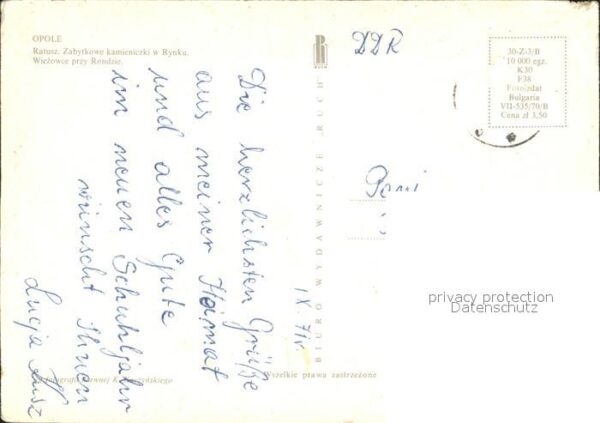 OPOLE
Ratusz. Zabytkowe kamieniczki w Rynku.
Wieżowce przy Rondzie.
Die herzlichsten Grüße
aus meiner Heimat
und alles Gute
im neuen Schuhljahr
wünscht Ihnen
Lucja
IX. 71r
BIURO WYDAWNICZE RUCH
DDR
30-Z-3/B
10 000 egz.
K30
F38
Fotoizdat
Bulgaria
VII-535/70/B
Cena zł 3,50
Pani
fotografii barwnej K.
Wszelkie prawa zastrzeżone
privacy protection
Datenschutz